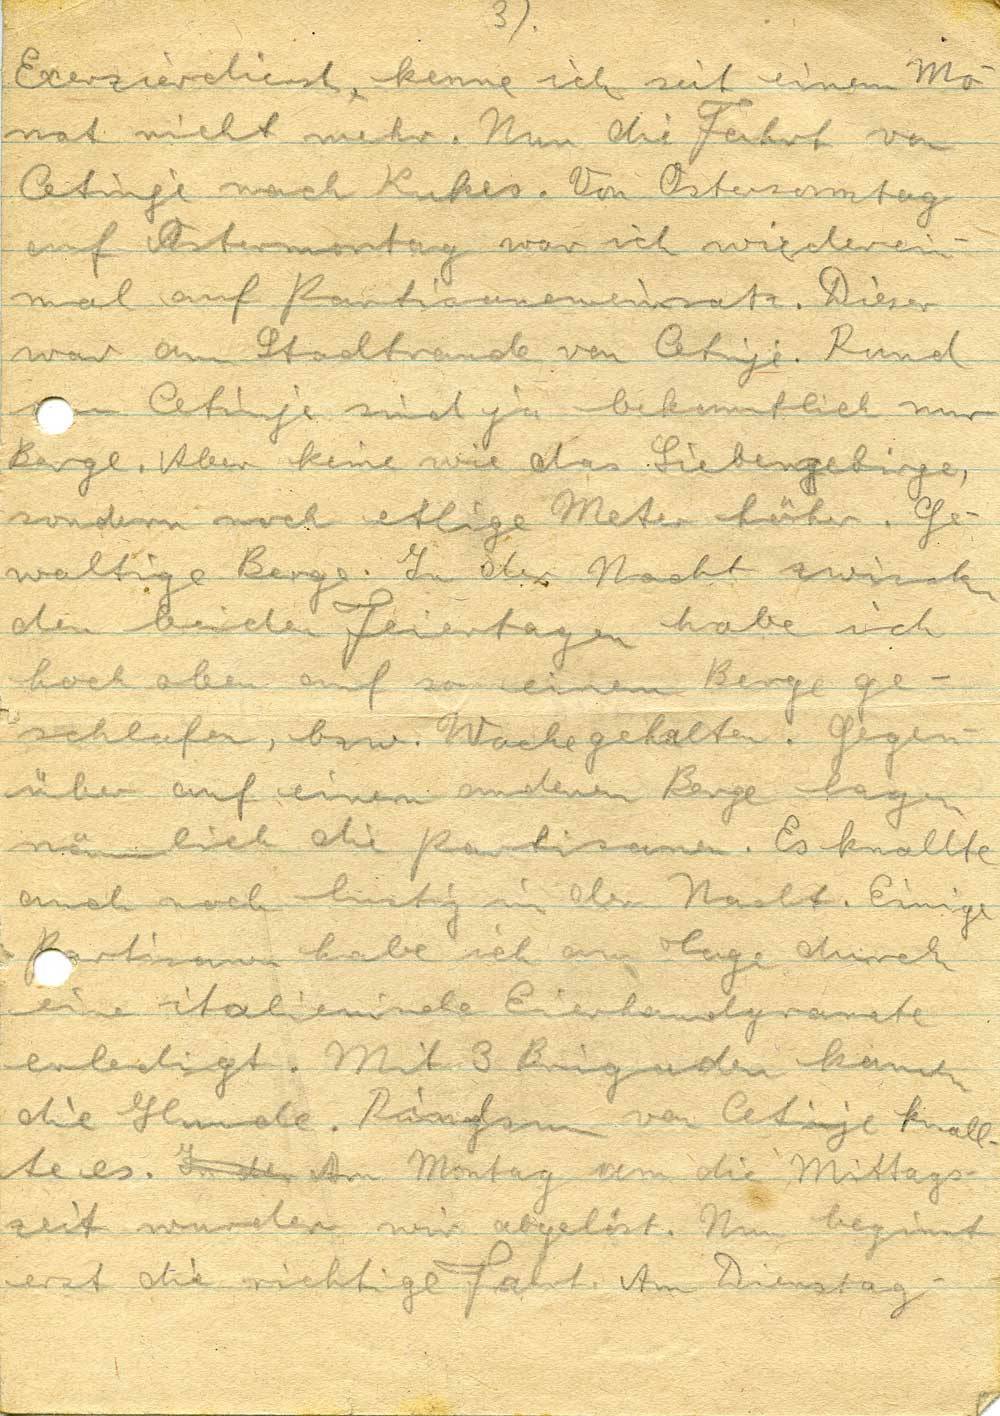 3).
Exerzierdienst, kenne ich seit einem Mo-
nat nicht mehr. Nun die Fahrt von
Cetinje nach Kukes. Von Ostersonntag
auf Ostermontag war ich wiederein-
mal auf Partisaneneinsatz. Dieser
war am Stadtrande von Cetinje. Rund
um Cetinje sind ja bekanntlich nur
Berge. Aber keine wie das Siebengebirge,
sondern noch etlige Meter höher. Ge-
waltige Berge. In der Nacht zwischen
den beiden Feiertagen habe ich
hoch oben auf so einem Berge ge-
schlafen, bzw. Wache gehalten. Gegen-
über auf einem anderen Berge lagen
nämlich die Partisanen. Es knallte
auch noch lustig in der Nacht. Einige
Partisanen habe ich am Tage durch
eine italienische Eierhandgranate
erledigt. Mit 3 Brigaden kamen
die Hunde. Ringsum von Cetinje knall-
te es. In der Am Montag um die Mittags-
zeit wurden wir abgelöst. Nun beginnt
erst die richtige Fahrt. Am Dienstag-